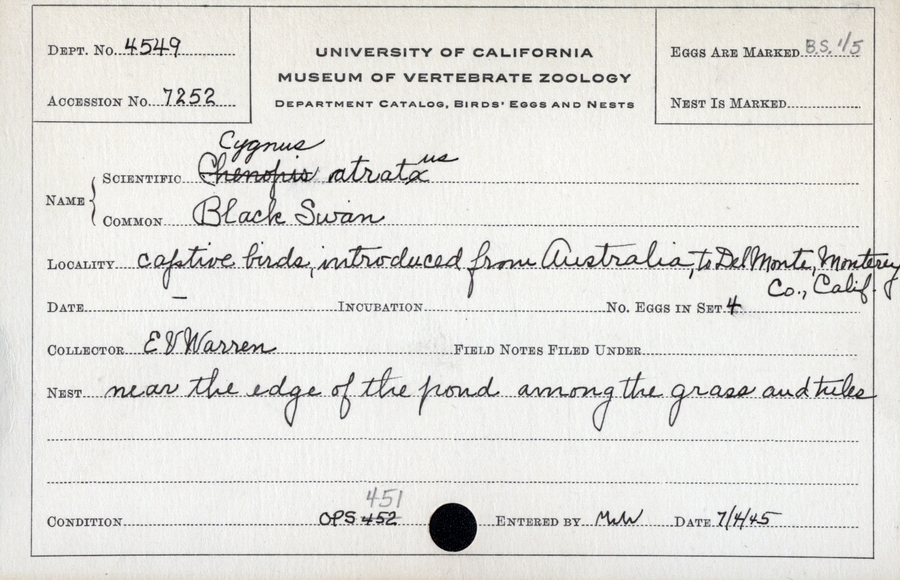 DEPT. NO. 4549
ACCESSION NO. 7252
UNIVERSITY OF CALIFORNIA
MUSEUM OF VERTEBRATE ZOOLOGY
DEPARTMENT CATALOG, BIRDS' EGGS AND NESTS
EGGS ARE MARKED B.S. 1/5
NEST IS MARKED
Cygnus
NAME SCIENTIFIC Chenopis atrata us
COMMON Black Swan
LOCALITY captive birds, introduced from Australia, to Del Monte, Monterey
Co., Calif.
DATE — INCUBATION NO. EGGS IN SET 4
COLLECTOR E V Warren FIELD NOTES FILED UNDER
NEST near the edge of the pond among the grass and tules
451
CONDITION OPS 452 ENTERED BY MW DATE 7/4/45